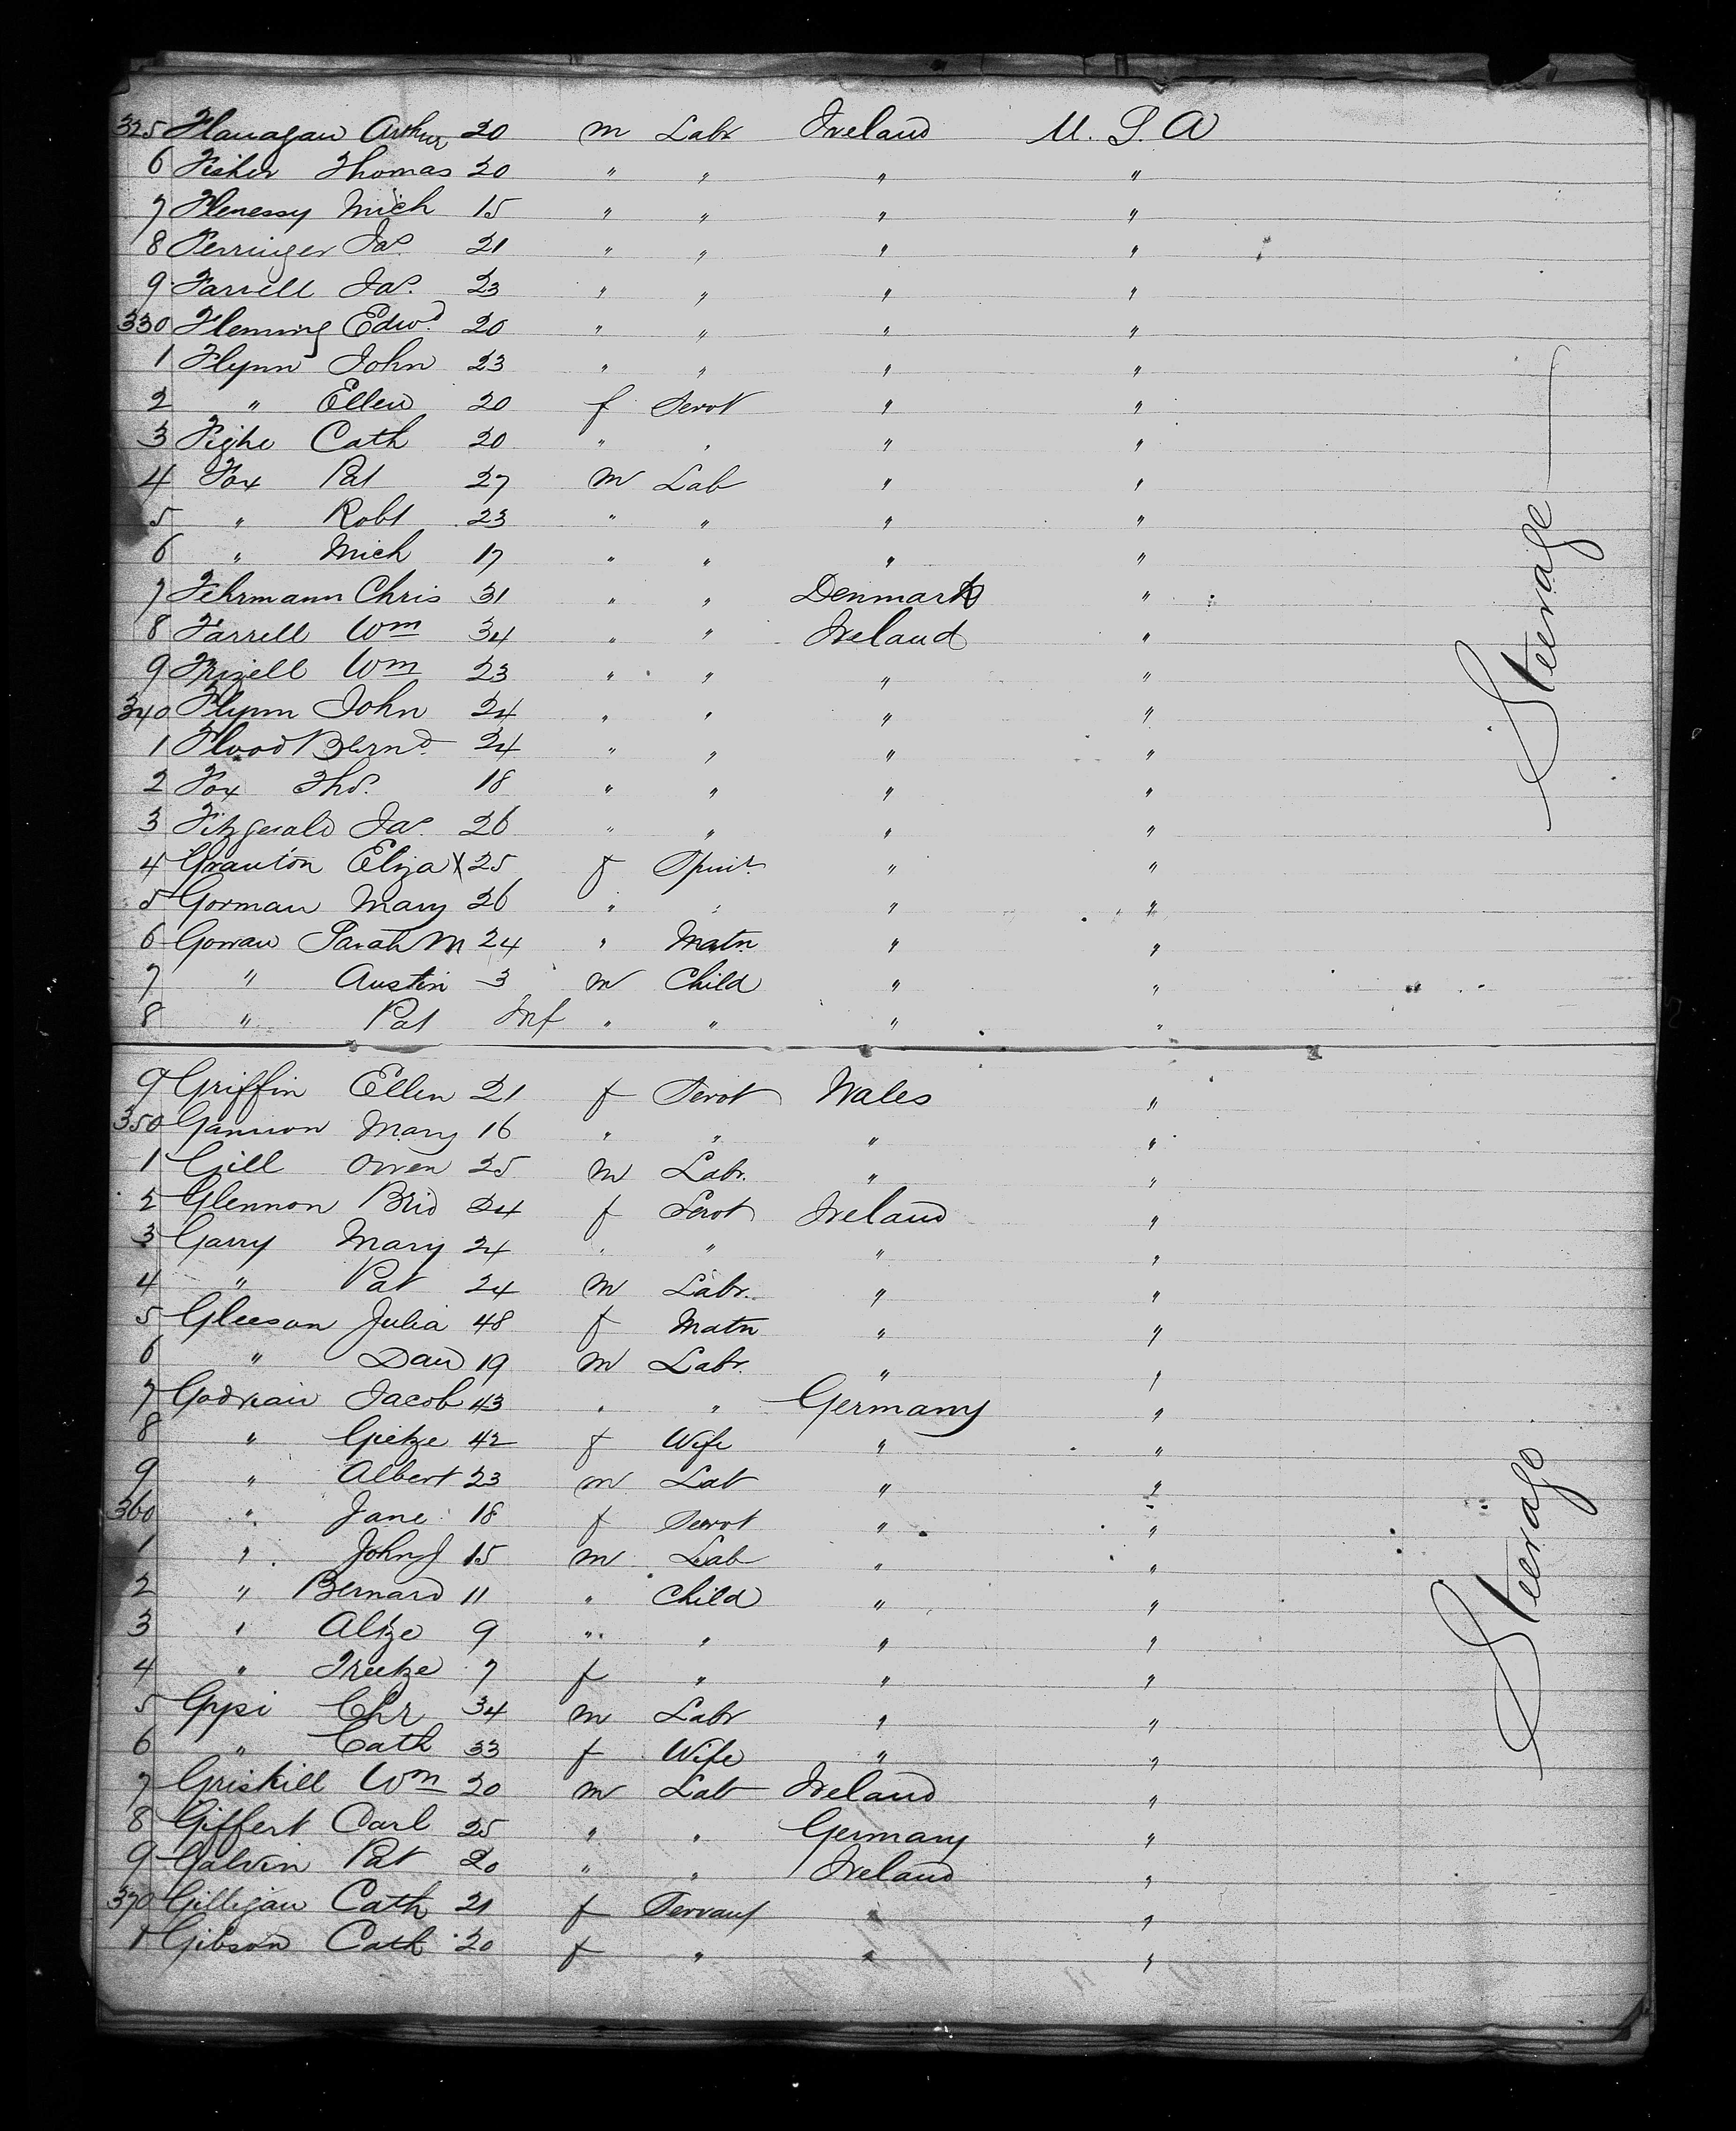 325 Flanagan Arthur 20 m Labr Ireland U. S. A
6 Fisher Thomas 20 " " " "
7 Flenessy Mich 15 " " " "
8 Ferringer Jas. 21 " " " "
9 Farrell Jas. 23 " " " "
330 Fleming Edwd. 20 " " " "
1 Flynn John 23 " " " "
2 " Ellen 20 f Servt " "
3 Fighe Cath 20 " " " "
4 Fox Pat 27 m Lab " "
5 " Robt 23 " " " "
6 " Mich 17 " " " "
7 Fehrmann Chris 31 " " Denmark "
8 Farrell Wm 34 " " Ireland "
9 Frizell Wm 23 " " " "
340 Flynn John 24 " " " "
1 Flood Bernd. 24 " " " "
2 Fox Ths. 18 " " " "
3 Fitzgerald Jas. 26 " " " "
4 Grauton Eliza X 25 f Spinr. " "
5 Gorman Mary 26 " " " "
6 Gowan Sarah M 24 " Matn " "
7 " Austin 3 m Child " "
8 " Pat Inf " " " "
Steerage
9 Griffin Ellen 21 f Servt Wales "
350 Gannon Mary 16 " " " "
1 Gill Owen 25 m Labr. " "
2 Glennon Brid 24 f Servt Ireland "
3 Garry Mary 24 " " " "
4 " Pat 24 m Labr. " "
5 Gleeson Julia 48 f Matn " "
6 " Dan 19 m Labr. " "
7 Jacob 43 " " Germany "
8 " Gietze 42 f Wife " "
9 " Albert 23 m Lab " "
360 " Jane 18 f Servt " "
1 " John J 15 m Lab " "
2 " Bernard 11 " Child " "
3 " Altze 9 " " " "
4 " 7 f " " "
5 Gypsi Chr 34 m Labr " "
6 " Cath 33 f Wife " "
7 Griskill Wm 20 m Lab Ireland "
8 Giffert Carl 25 " " Germany "
9 Galvin Pat 20 " " Ireland "
370 Gilligan Cath 21 f Servant " "
1 Gibson Cath 20 f " " "
Steerage